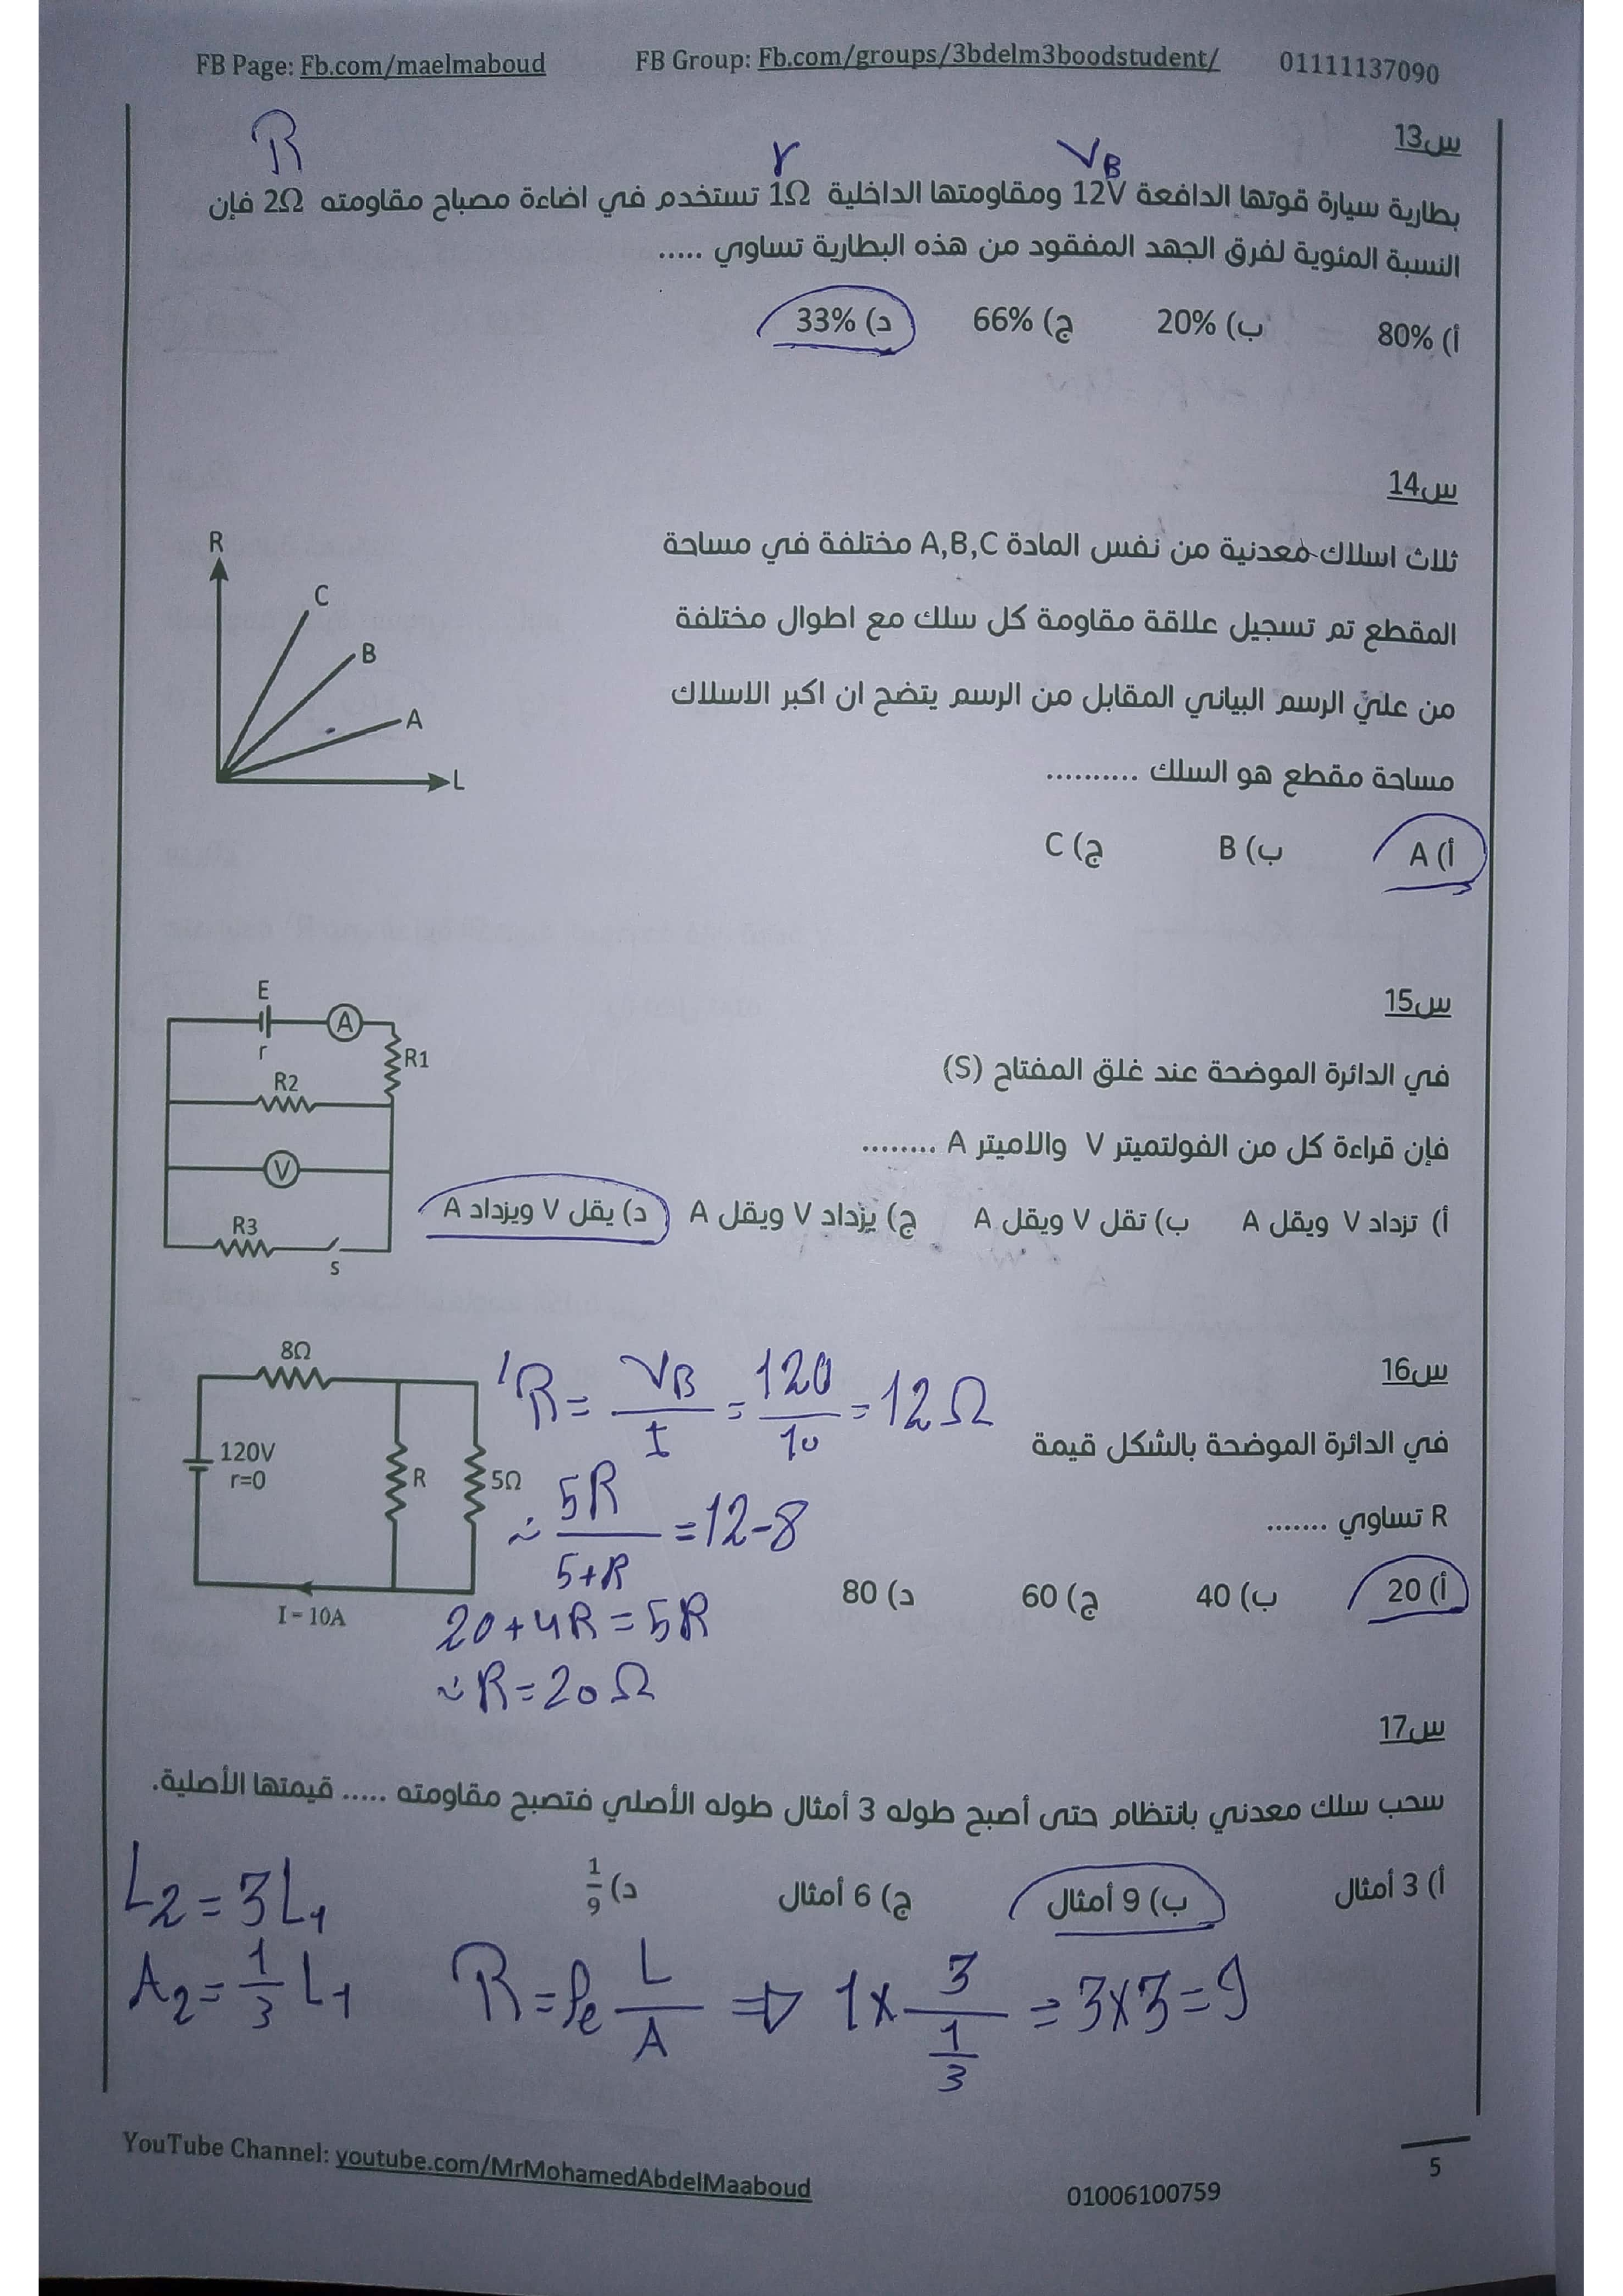 FB Page: Fb.com/maelmaboud FB Group: Fb.com/groups/3bdelm3boodstudent/ 01111137090
R r VB
س13
بطارية سيارة قوتها الدافعة 12V ومقاومتها الداخلية 1Ω تستخدم في اضاءة مصباح مقاومته 2Ω فإن
النسبة المئوية لفرق الجهد المفقود من هذه البطارية تساوي .....
أ) 80% ب) 20% ج) 66% د) 33%
س14
ثلاث اسلاك معدنية من نفس المادة A,B,C مختلفة في مساحة
المقطع تم تسجيل علاقة مقاومة كل سلك مع اطوال مختلفة
من علي الرسم البياني المقابل من الرسم يتضح ان اكبر الاسلاك
مساحة مقطع هو السلك ..........
R
C
B
A
L
أ) A ب) B ج) C
س15
في الدائرة الموضحة عند غلق المفتاح (S)
فإن قراءة كل من الفولتميتر V والاميتر A ........
أ) تزداد V ويقل A ب) تقل V ويقل A ج) يزداد V ويقل A د) يقل V ويزداد A
E
A
r
R1
R2
V
R3
S
س16
في الدائرة الموضحة بالشكل قيمة
R تساوي .......
أ) 20 ب) 40 ج) 60 د) 80
8Ω
120V
r=0
R
5Ω
I = 10A
'R = VB/I = 120/10 = 12Ω
∴ 5R/5+R = 12-8
20+4R = 5R
∴ R = 20Ω
س17
سحب سلك معدني بانتظام حتى أصبح طوله 3 أمثال طوله الأصلي فتصبح مقاومته ..... قيمتها الأصلية.
أ) 3 أمثال ب) 9 أمثال ج) 6 أمثال د) 1/9
L2 = 3L1
A2 = 1/3 L1
R = ρe L/A ⇒ 1 × 3/(1/3) = 3×3 = 9
5
YouTube Channel: youtube.com/MrMohamedAbdelMaaboud 01006100759